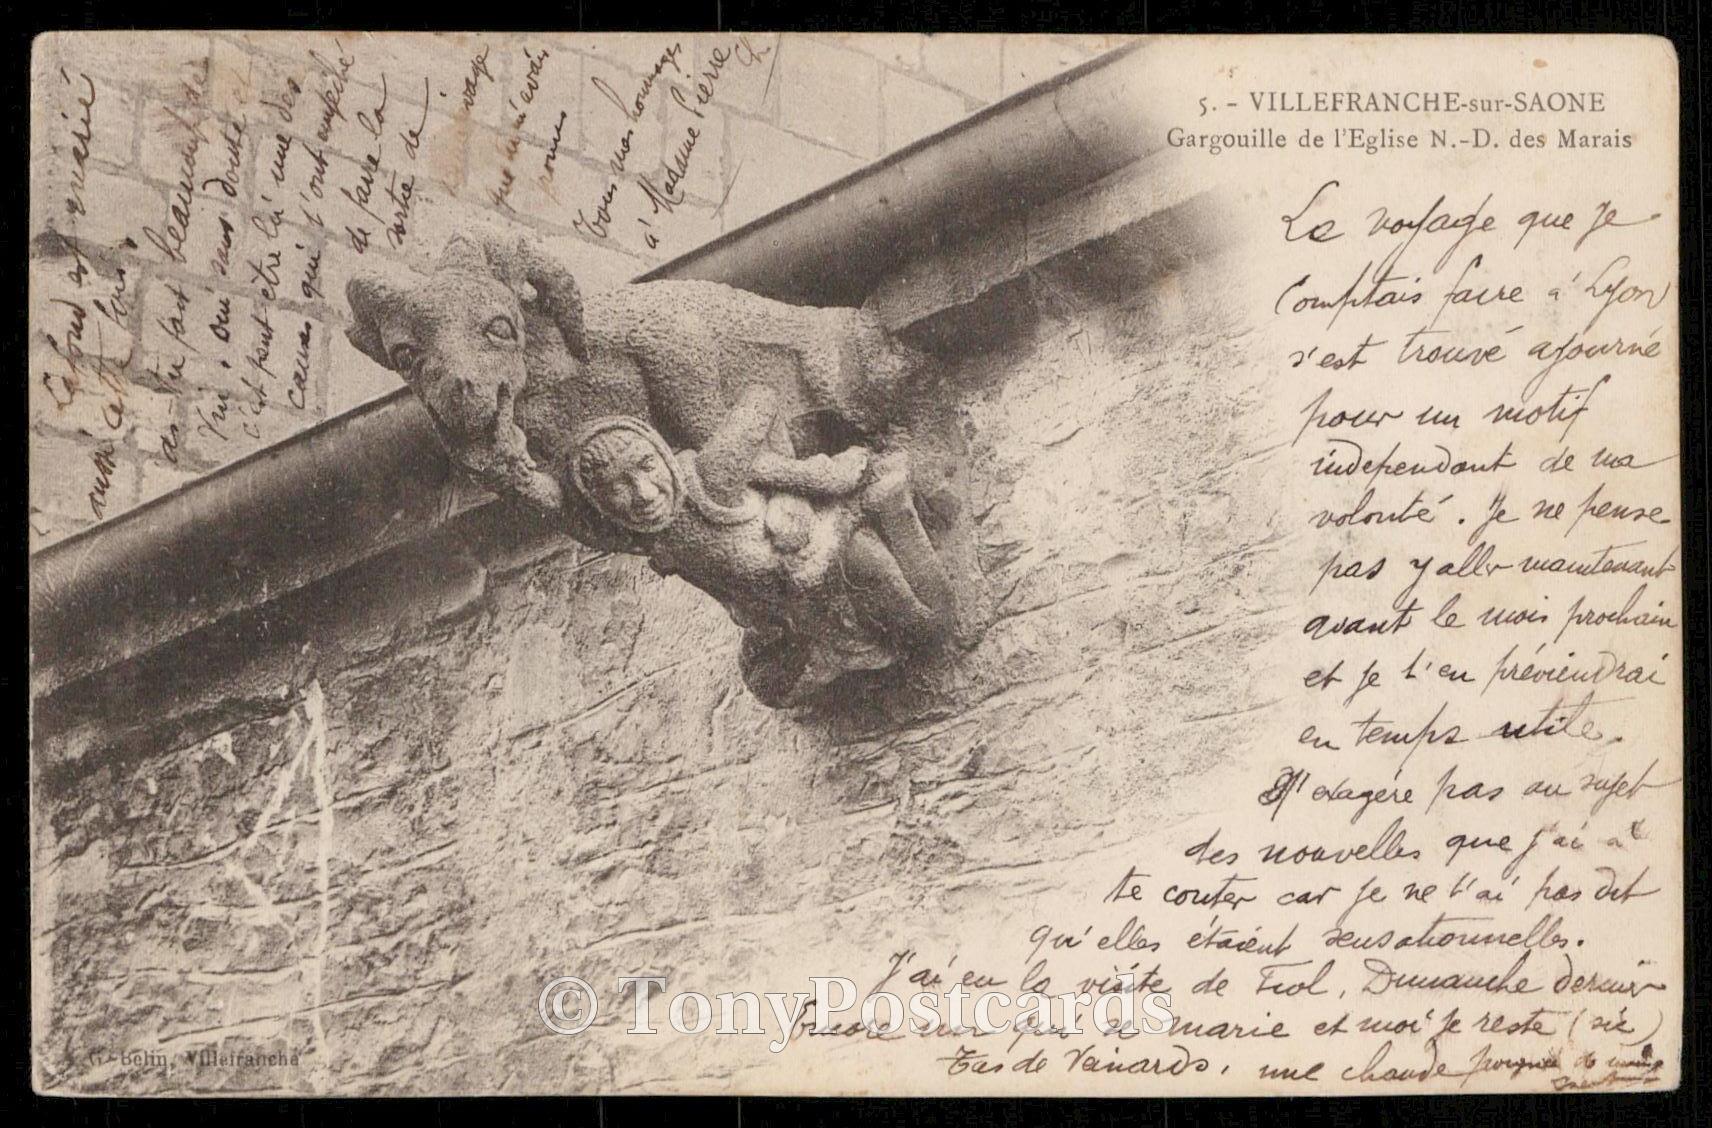 5. - VILLEFRANCHE-sur-SAONE
Gargouille de l'Eglise N.-D. des Marais
Le voyage que je
comptais faire à Lyon
s'est trouvé ajourné
pour un motif
independant de ma
volonté. Je ne pense
pas y aller maintenant
avant le mois prochain
et je t'en préviendrai
en temps utile.
J'exagére pas au sujet
des nouvelles que j'ai à
te conter car je ne t'ai pas dit
qu'elles étaient sensationnelles.
J'ai eu la visite de Dimanche dernier
Encore un qui se marie et moi je reste (sic)
Tas de Veinards, une chaude poignée de main
Lafond est marié
aussi
as-tu fait beaucoup de
Vin, oui sans doute et
c'est peut être là une des
causes qui t'ont empêché
de faire la
sortie de
que m'avais
promis
Tous mes hommages
à Madame Pierre
Ch
G. Belin, Villefranche
© TonyPostcards